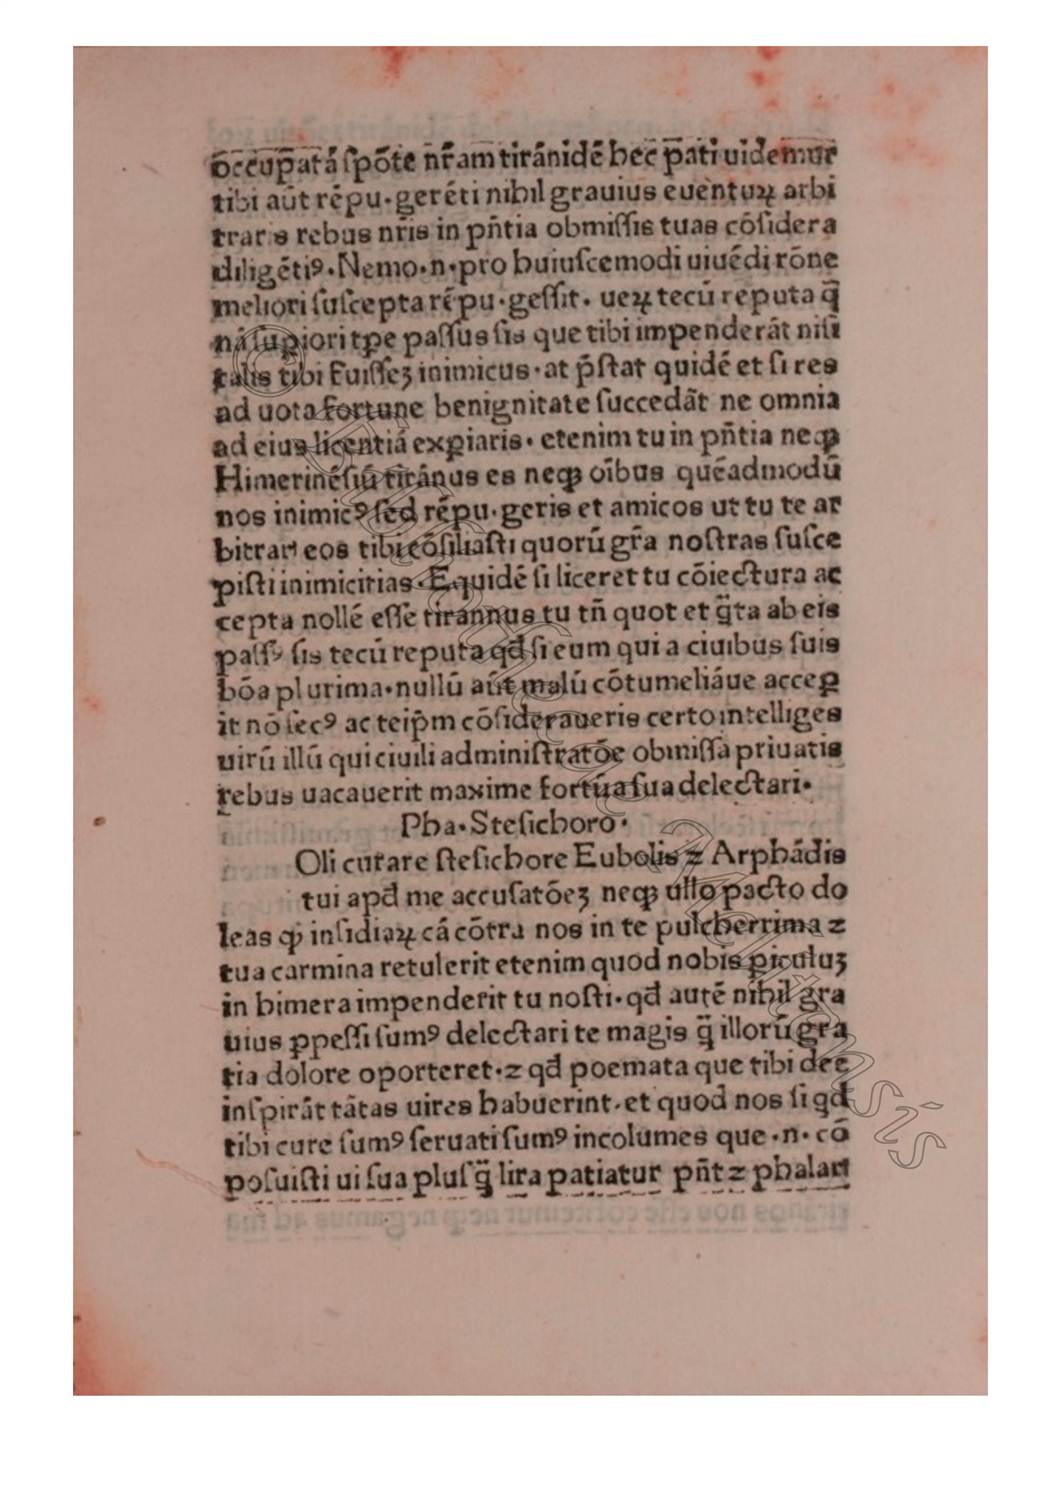 occupatā ſpōte nr̄am tirānidē hec p̄ati uidemur
tibi aūt rēpu·gerēti nihil grauius euentuꝝ arbi
traris rebus nr̄is in pn̄tia obmiſſis tuas cōſidera
diligētiꝰ·Nemo·n·pro huiuſcemodi uiuēdi rōne
meliori ſuſcepta rēpu·geſſit· ueꝝ tecū reputa q̄
nā ſuꝑiori tꝑe paſſus ſis que tibi impenderāt niſi
talis tibi fuiſſeꝫ inimicus·at p̄ſtat quidē et ſi res
ad uota fortune benignitate ſuccedāt ne omnia
ad eius licentiā exꝑiaris· etenim tu in pn̄tia neqꝫ
Himerinēſiū tirānus es neqꝫ oībus quēadmodū
nos inimicꝰ ſed rēpu·geris et amicos ut tu te ar
bitrari eos tibi cōſiliaſti quorū gr̄a noſtras ſuſce
piſti inimicitias·Equidē ſi liceret tu cōiectura ac
cepta nollē eſſe tirannus tu tn̄ quot et q̄ta ab eis
paſſꝰ ſis tecū reputa qd̄ ſi eum qui a ciuibus ſuis
bōa plurima·nullū aūt malū cōtumeliāue acceꝑ
it nō ſecꝰ ac teip̄m cōſideraueris certo intelliges
uirū illū qui ciuili adminiſtratōe obmiſſa priuatis
rebus uacauerit maxime fortūa ſua delectari·
Pha·Steſichoro·
Oli curare ſteſichore Eubolis ⁊ Arphādis
tui apd̄ me accuſatōeꝫ neqꝫ ullo pacto do
leas ꝙ inſidiaꝝ cā cōtra nos in te pulcherrima ⁊
tua carmina retulerit etenim quod nobis ꝑiculuꝫ
in himera impenderit tu noſti·qd̄ autē nihil gra
uius ꝑpeſſi ſumꝰ delectari te magis q̄ illorū gra
tia dolore oporteret·⁊ qd̄ poemata que tibi dee
inſpirāt tātas uires habuerint·et quod nos ſi qd̄
tibi cure ſumꝰ ſeruati ſumꝰ incolumes que·n·cō
poſuiſti ui ſua pluſq̄ lira patiatur pn̄t ⁊ phalari
© Bibliotheca Melitensis